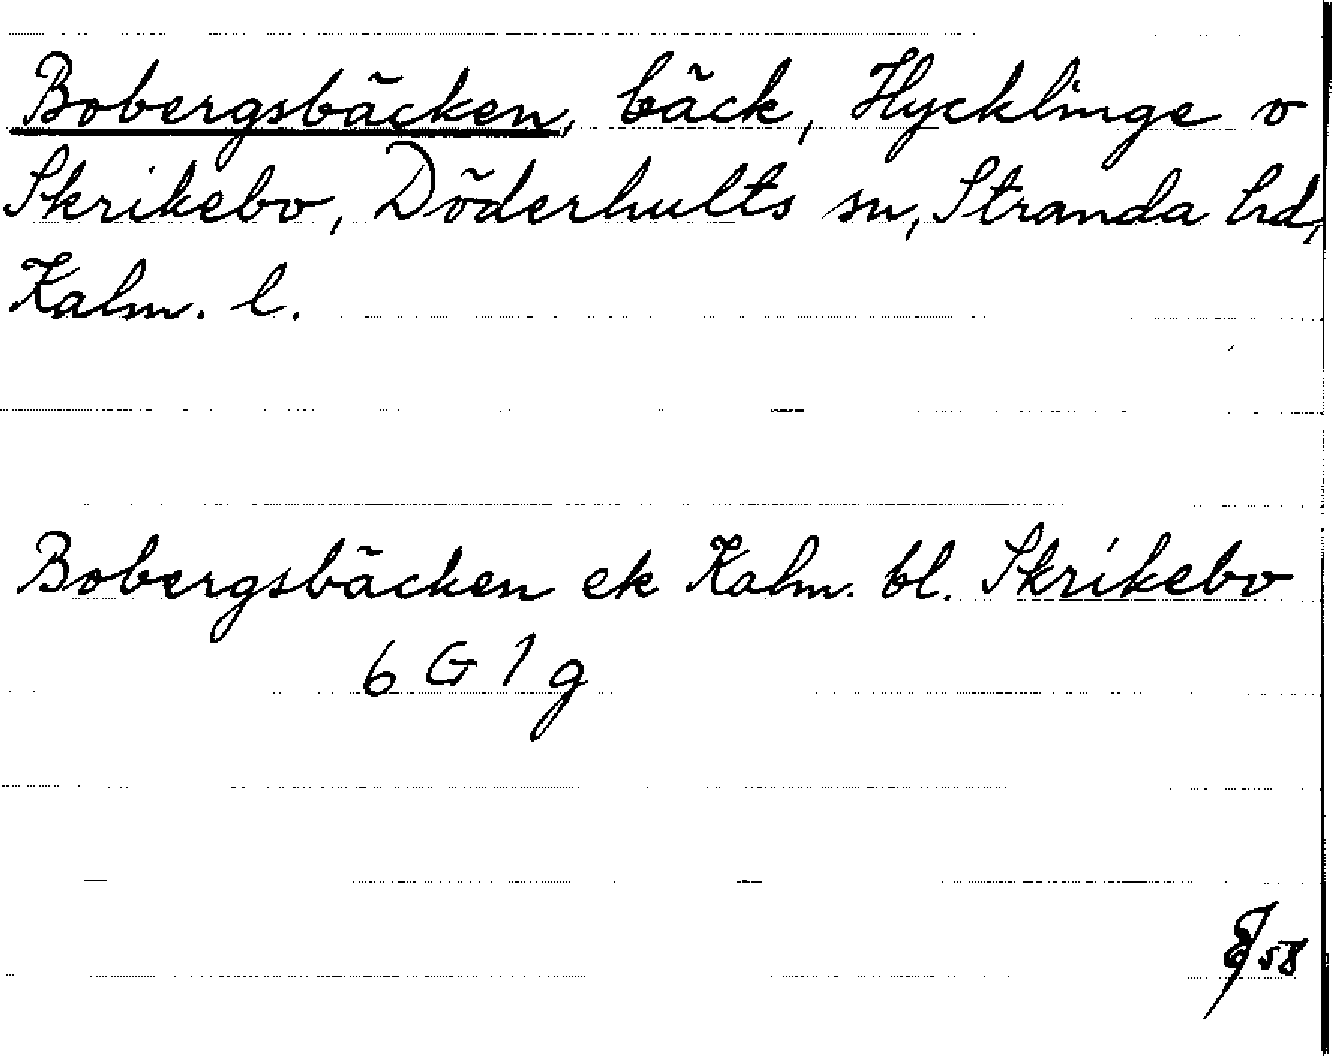 Bobergsbäcken, bäck, Hycklinge o
Skrikebo, Döderhults sn, Stranda hd,
Kalm. l.
Bobergsbäcken ek Kalm. bl. Skrikebo
6 G 1 g
58